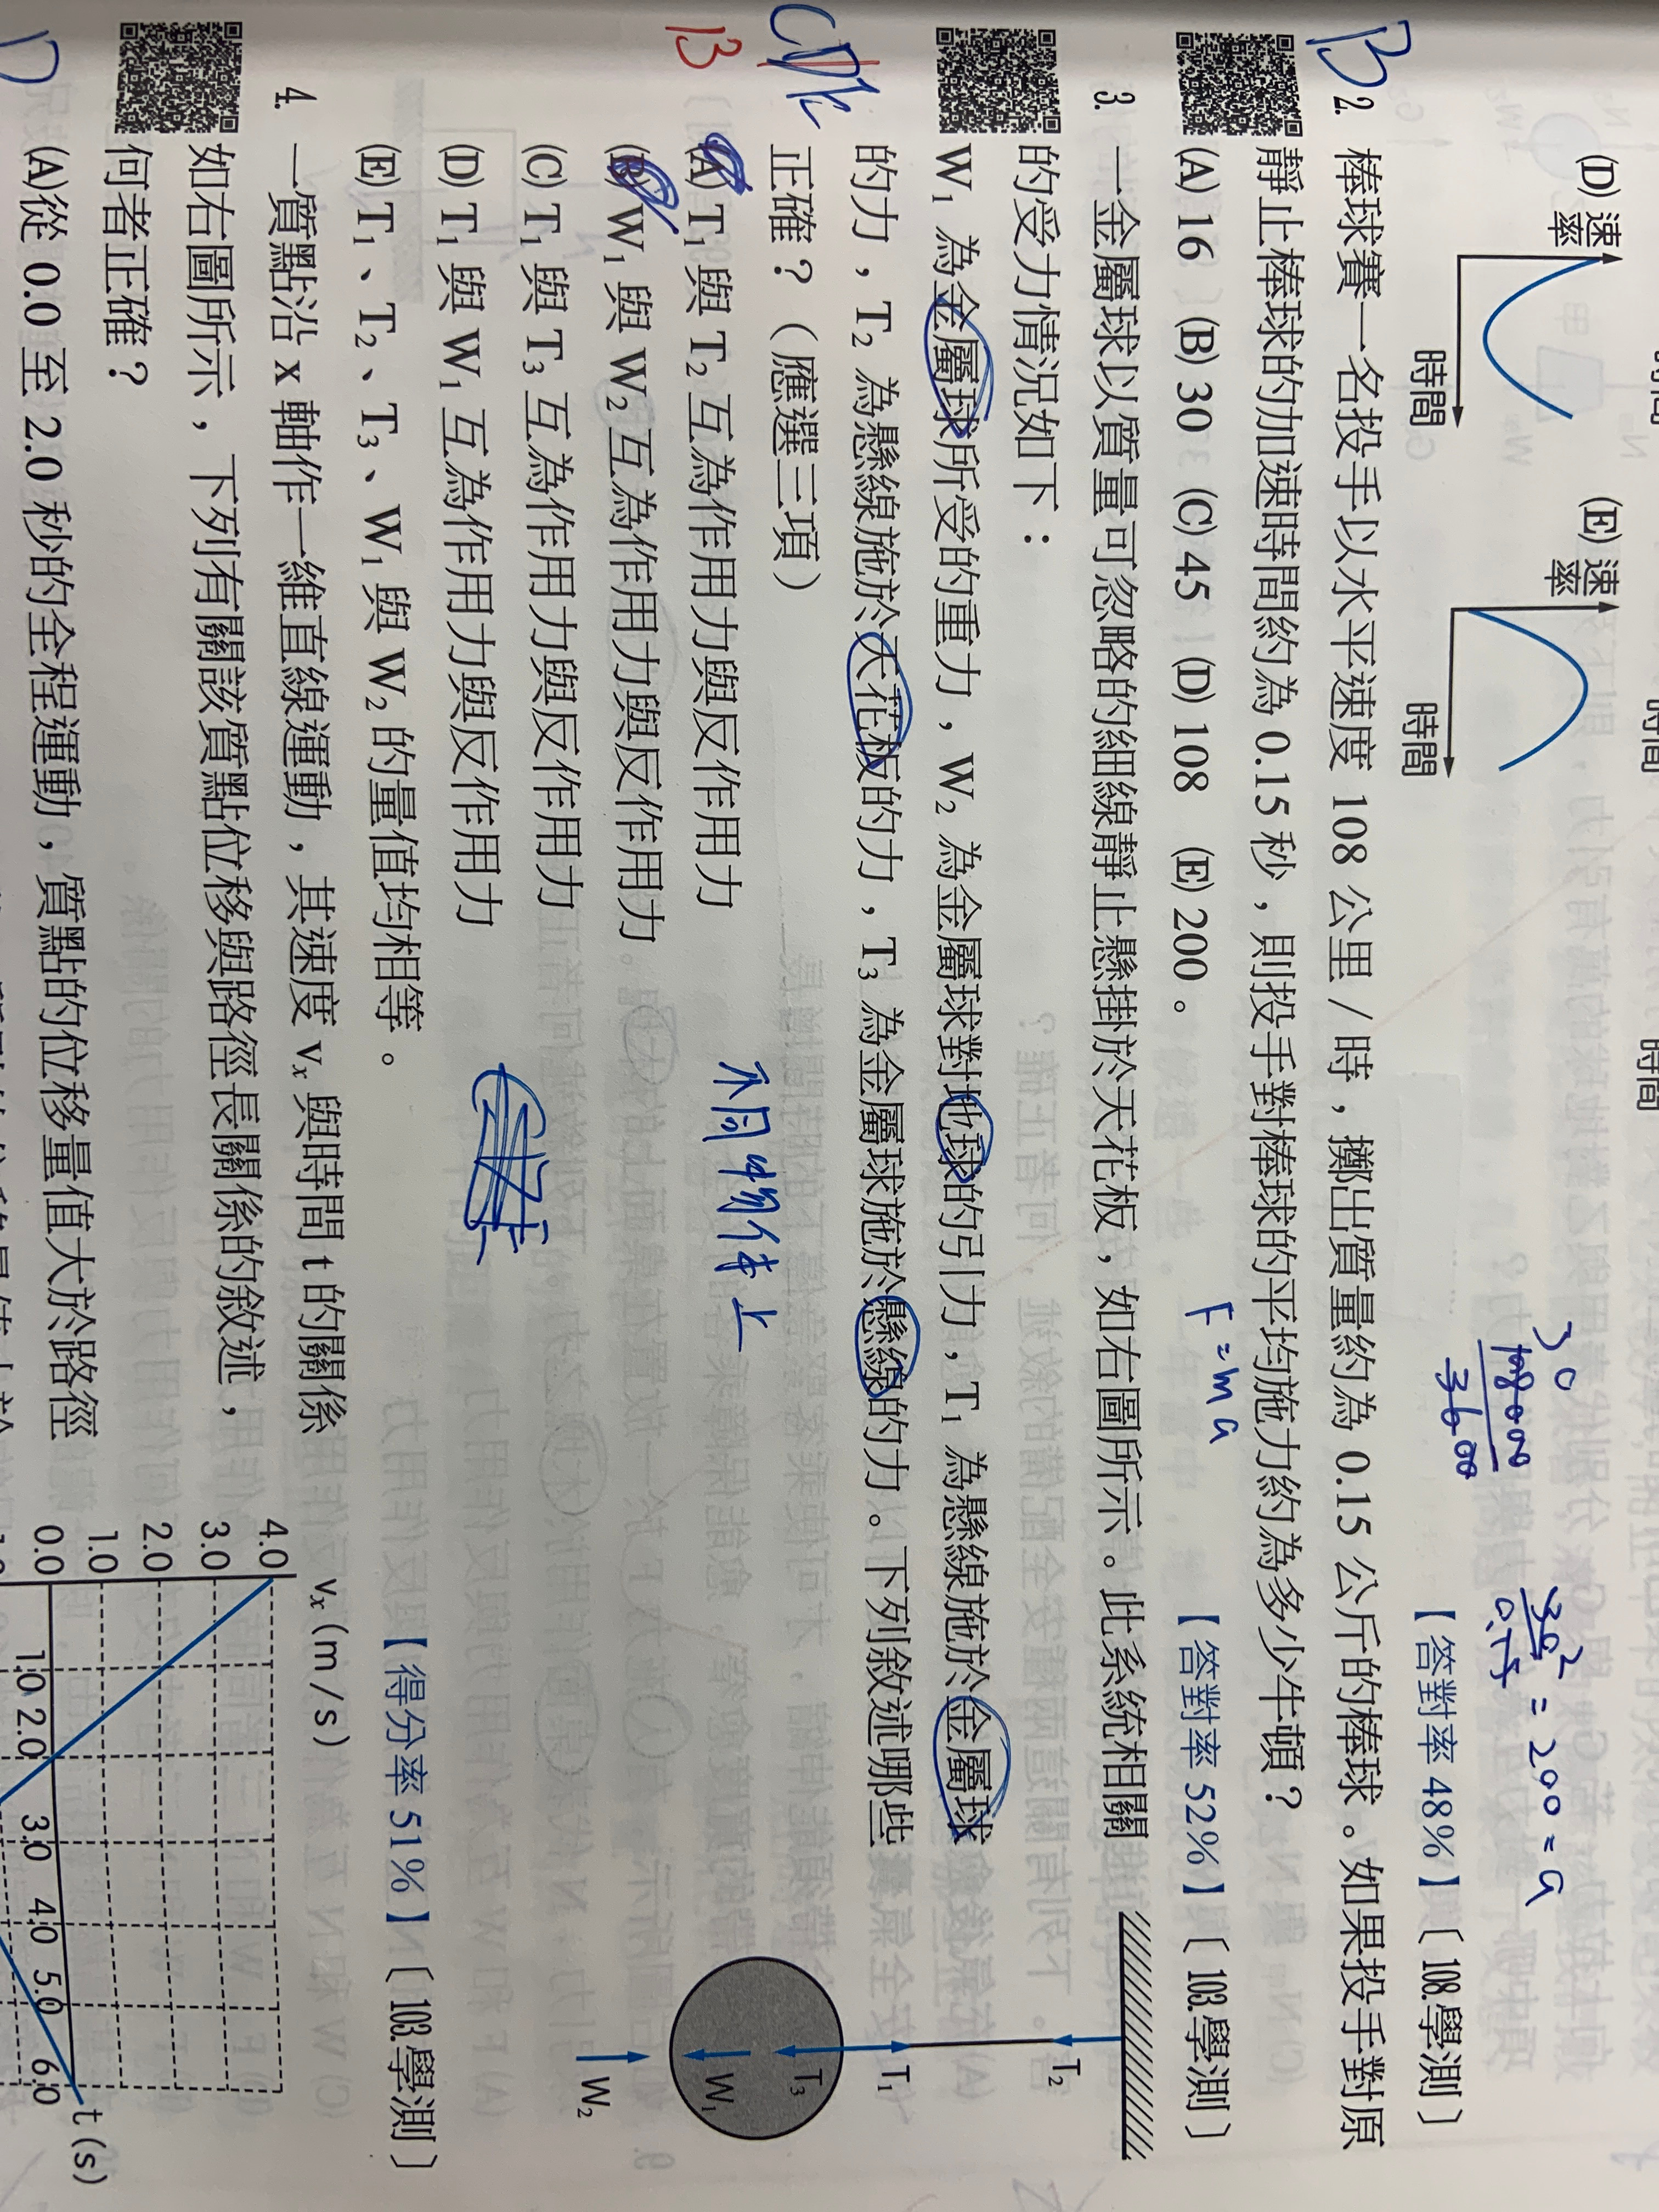 (D) 速率
時間
(E) 速率
時間
時間
30
108000
3600
30
0.15
2
= 200 = a
【答對率 48%】〔108.學測〕
B
2. 棒球賽一名投手以水平速度 108 公里/時，擲出質量約為 0.15 公斤的棒球。如果投手對原
靜止棒球的加速時間約為 0.15 秒，則投手對棒球的平均施力約為多少牛頓？
(A) 16 (B) 30 (C) 45 (D) 108 (E) 200。
F = ma
【答對率 52%】〔103.學測〕
3. 一金屬球以質量可忽略的細線靜止懸掛於天花板，如右圖所示。此系統相關
的受力情況如下：
W₁ 為金屬球所受的重力，W₂ 為金屬球對地球的引力，T₁ 為懸線施於金屬球
的力，T₂ 為懸線施於天花板的力，T₃ 為金屬球施於懸線的力。下列敘述哪些
正確？（應選三項）
B
(A) T₁ 與 T₂ 互為作用力與反作用力
不同物体上
(B) W₁ 與 W₂ 互為作用力與反作用力
(C) T₁ 與 T₃ 互為作用力與反作用力
(D) T₁ 與 W₁ 互為作用力與反作用力
(E) T₁、T₂、T₃、W₁ 與 W₂ 的量值均相等。
【得分率 51%】〔103.學測〕
T₂
T₁
T₃
W₁
W₂
4. 一質點沿 x 軸作一維直線運動，其速度 vₓ 與時間 t 的關係
如右圖所示，下列有關該質點位移與路徑長關係的敘述，
何者正確？
D
(A)從 0.0 至 2.0 秒的全程運動，質點的位移量值大於路徑
vₓ (m/s)
4.0
3.0
2.0
1.0
0.0
1.0 2.0 3.0 4.0 5.0 6.0
t (s)